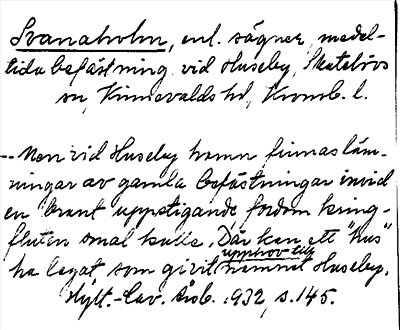 Svanaholm, enl. sägner, medel-
tida befästning vid Huseby, Skatelövs
sn, Kinnevalds hd, Kronob. l.
-- Men vid Huseby hamn finnas läm-
ningar av gamla befästningar invid
en brant uppstigande fordom kring-
fluten smal kulle. Där kan ett "hus"
ha legat som givit upphov till namnet Huseby.
Hylt.-Cav. Årsb. 1932, s. 145.